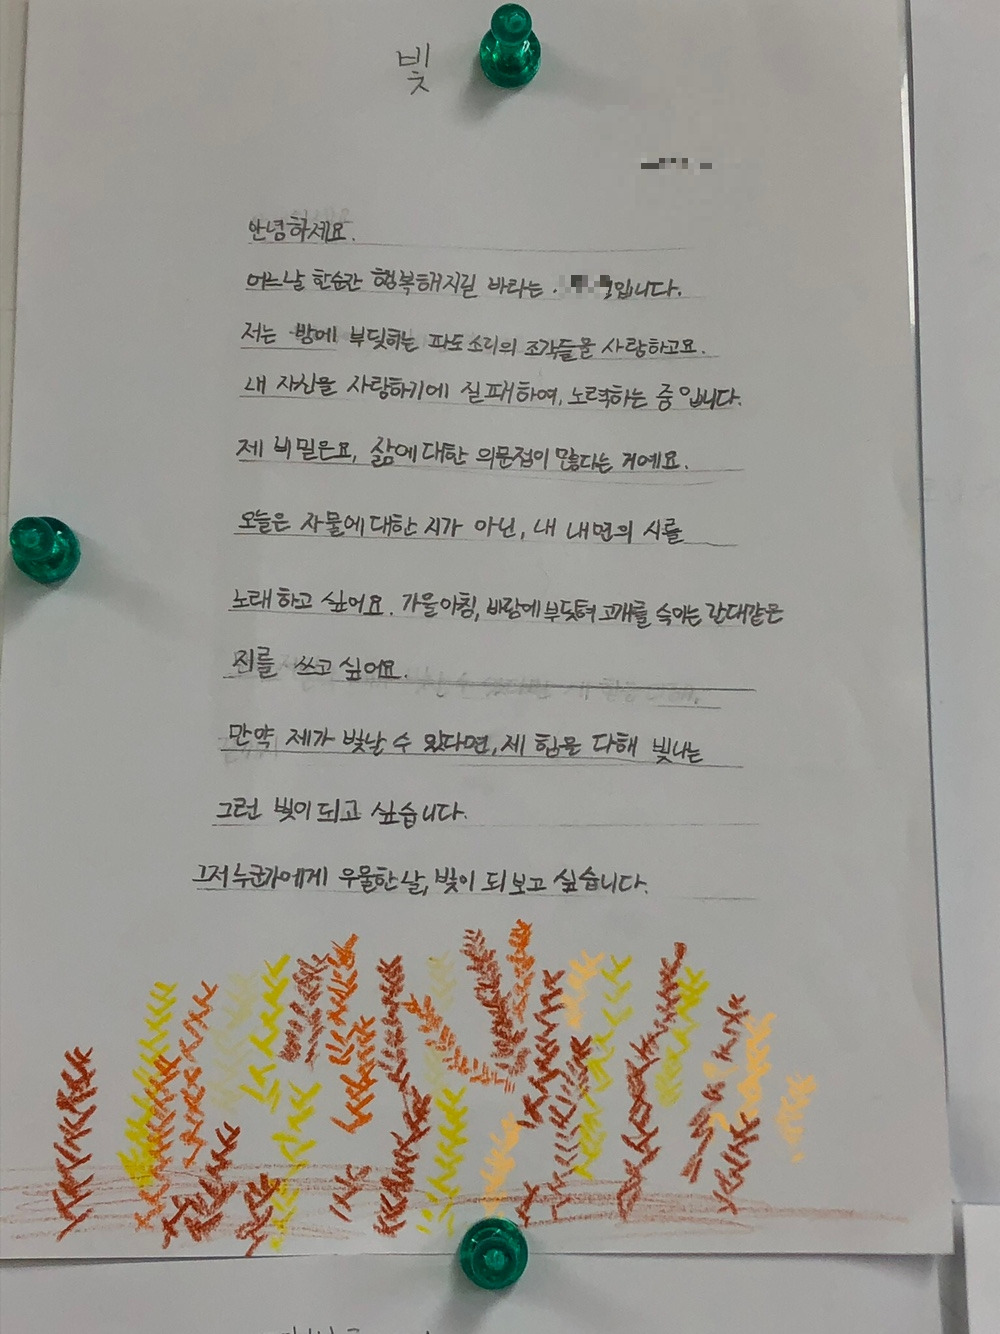 빛
안녕하세요.
어느날 한순간 행복해지길 바라는 입니다.
저는 밤에 부딪하는 파도소리의 조각들을 사랑하고요.
내 자신을 사랑하기에 실패하여, 노력하는 중입니다.
제 비밀은요, 삶에 대한 의문점이 많다는 거예요.
오늘은 사물에 대한 시가 아닌, 내 내면의 시를
노래하고 싶어요. 가을아침, 바람에 부딫혀 고개를 숙이는 갈대같은
시를 쓰고 싶어요.
만약 제가 빛날 수 있다면, 제 힘을 다해 빛나는
그런 빛이 되고 싶습니다.
그저 누군가에게 우울한 날, 빛이 되 보고 싶습니다.